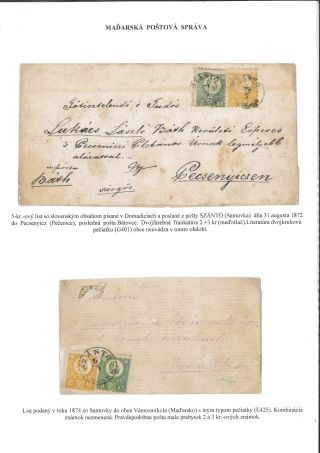 MAĎARSKÁ POŠTOVÁ SPRÁVA
SZÁNTÓ
Főtisztelendő s Tudós
Lukács László Báth Kerületi Esperes
s Pecseniczi Plébános Urnak legmélyebb
alázattal
Báth
sürgős
Pecsenyiczen
5-kr.-ový list so slovenským obsahom písané v Domadiciach a poslané z pošty SZÁNTÓ (Santovka) dňa 31.augusta 1872
do Pecsenyicz (Pečenice), posledná pošta Bátovce. Dvojfarebná frankatúra 2 +3 kr (meďotlač).Literatúra dvojkruhovú
pečiatku (G401) obce neuvádza v tomto období.
SZÁNTÓ
List podaný v roku 1874 zo Santovky do obce Vámosmikola (Maďarsko) s iným typom pečiatky (E425). Kombinácia
známok nezmenená. Pravdepodobne pošta mala prebytok 2 a 3 kr.-ových známok.